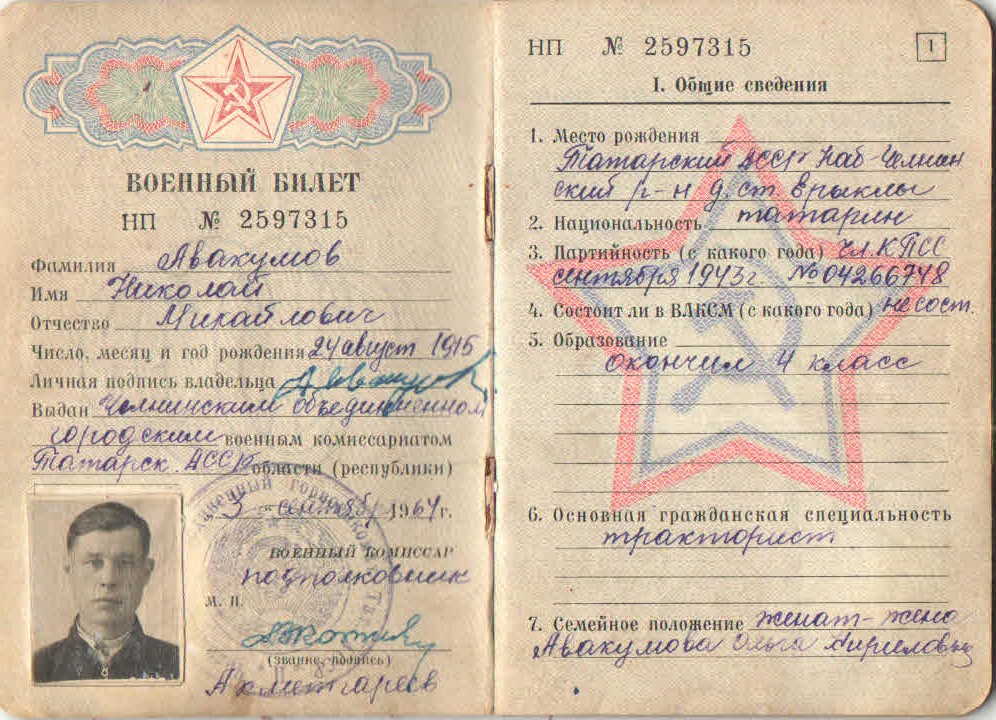 ВОЕННЫЙ БИЛЕТ
НП № 2597315
Фамилия Авакумов
Имя Николай
Отчество Михайлович
Число, месяц и год рождения 24 август 1915
Личная подпись владельца
Выдан Челнинским объединенном
городским военным комиссариатом
Татарск. АССР области (республики)
3 сентябр 1964 г.
ВОЕННЫЙ КОМИССАР
подполковник
М. П.
(звание, подпись)
Ахметгареев
НП № 2597315
1
I. Общие сведения
1. Место рождения
Татарский АССР Наб-Челнин
ский р-н д. ст Ерыклы
2. Национальность татарин
3. Партийность (с какого года) Чл. КПСС
сентября 1943г. № 04266748
4. Состоит ли в ВЛКСМ (с какого года) не сост.
5. Образование
окончил 4 класс
6. Основная гражданская специальность
тракторист
7. Семейное положение женат - жена
Авакумова Ольга Кириловн